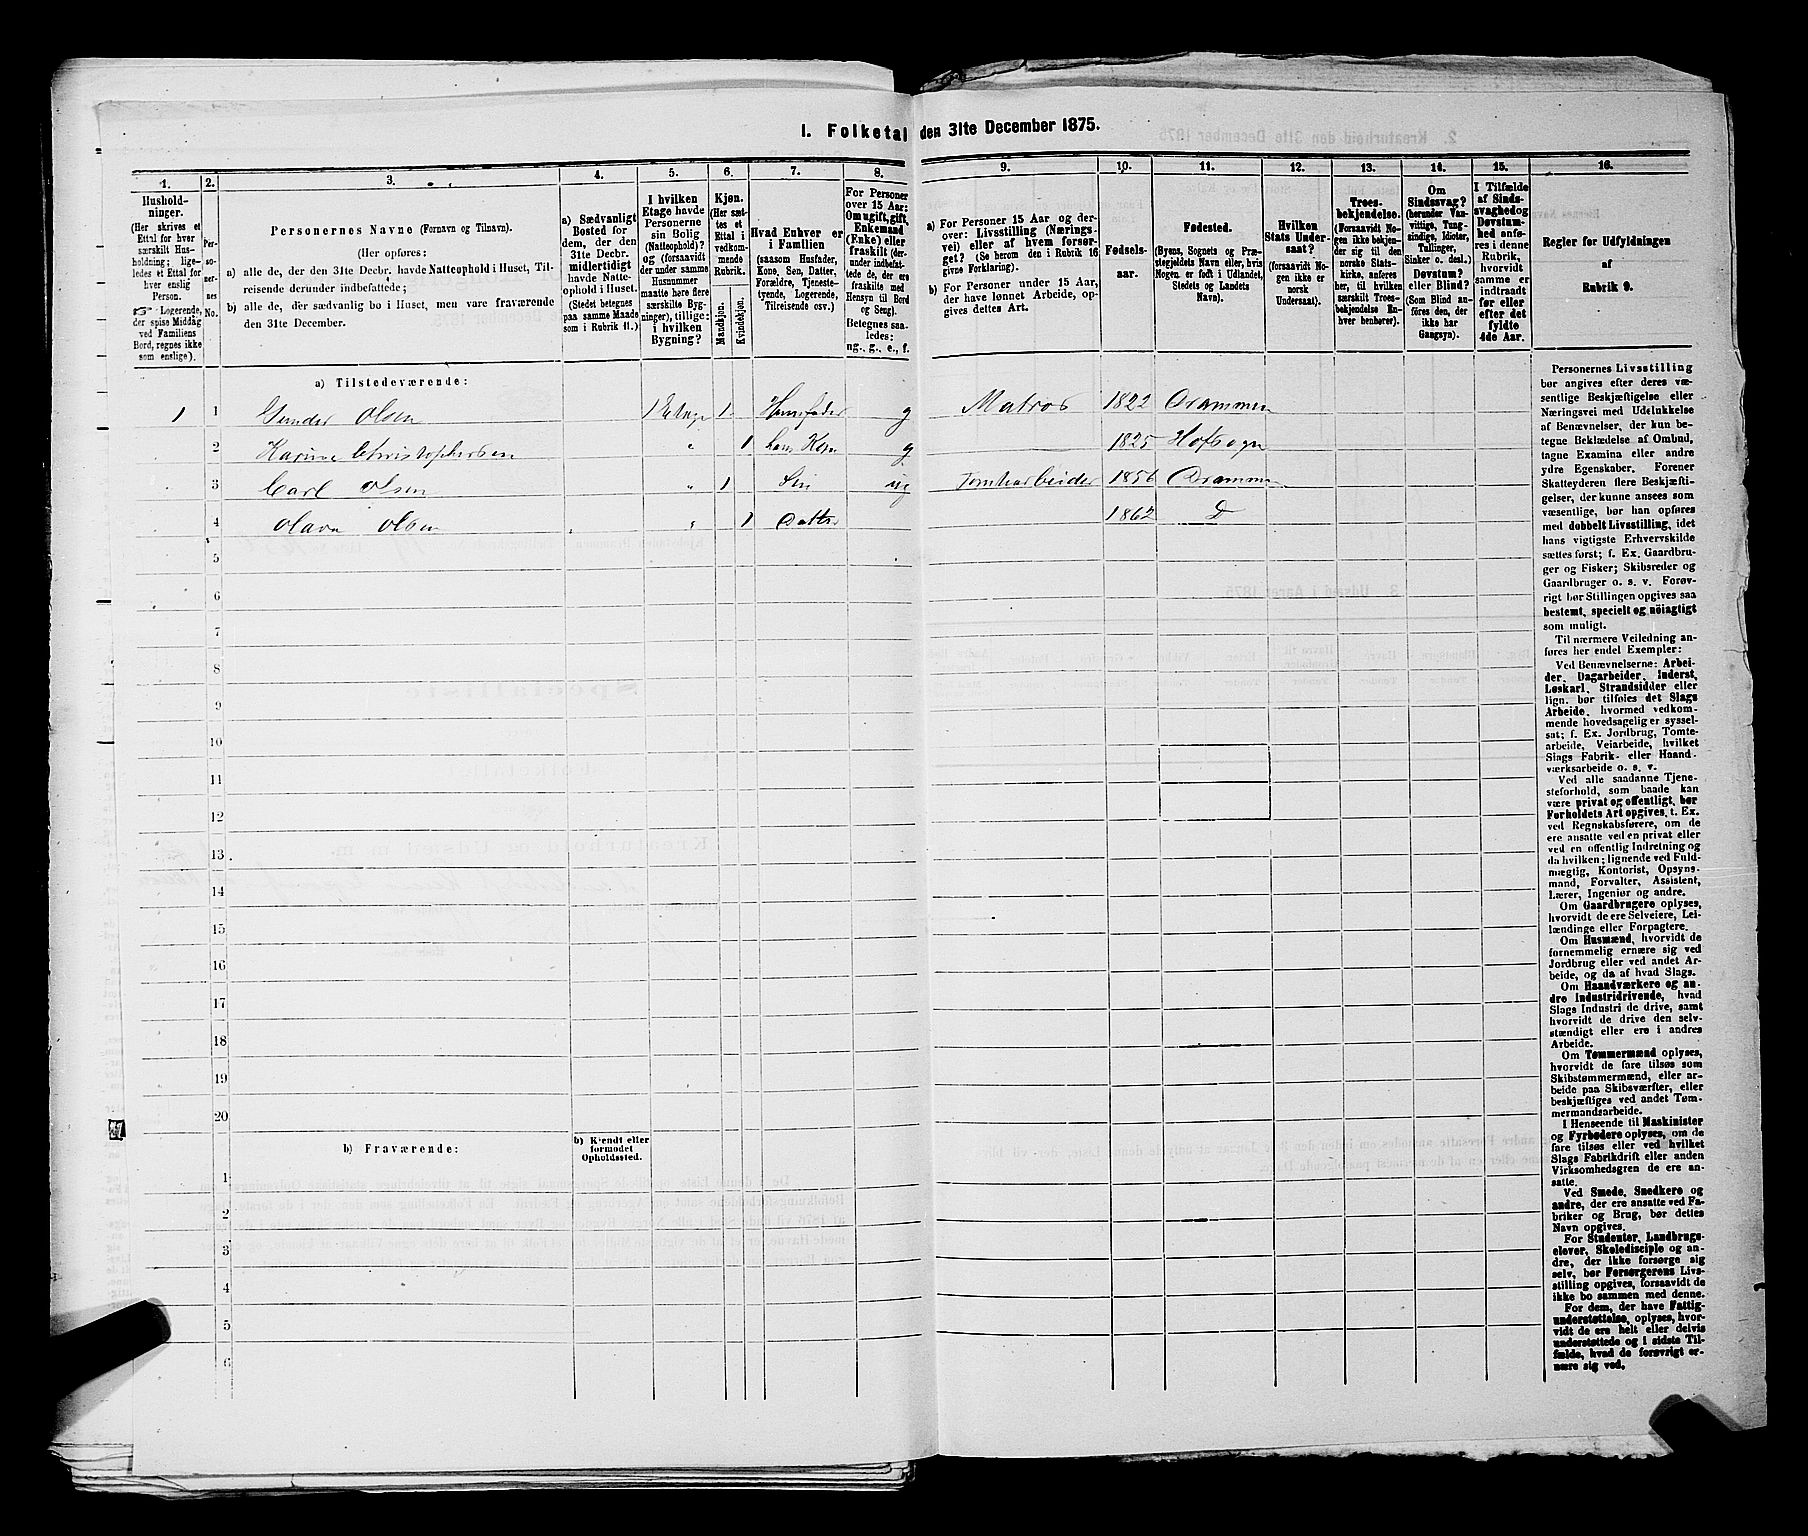 1. Folketal den 31te December 1875.
1.
Husholdninger.
(Her skrives et
Ettal for hver
særskilt Husholdning; ligeledes et Ettal for
hver enslig
Person.
☞ Logerende,
der spise Middag
ved Familiens
Bord, regnes ikke
som enslige).
2.
Personernes
No.
3.
Personernes Navne (Fornavn og Tilnavn).
(Her opføres:
a) alle de, der den 31te Decbr. havde Natteophold i Huset, Tilreisende derunder indbefattede;
b) alle de, der sædvanlig bo i Huset, men vare fraværende
den 31te December.
4.
a) Sædvanligt
Bosted for
dem, der den
31te Decbr.
midlertidigt
havde Natteophold i Huset.
(Stedet betegnes
paa samme Maade
som i Rubrik 11.)
5.
I hvilken
Etage havde
Personerne
sin Bolig
(Natteophold)?
og (forsaavidt
der under samme
Husnummer
maatte høre flere
særskilte Bygninger), tillige:
i hvilken
Bygning?
6.
Kjøn.
(Her sættes et
Ettal i
vedkommende
Rubrik.
Mandkjøn.
Kvindekjøn.
7.
Hvad Enhver er
i Familien
(saasom Husfader,
Kone, Søn, Datter,
Forældre, Tjenestetyende, Logerende,
Tilreisende osv.)
8.
For Personer
over 15 Aar:
Om ugift, gift,
Enkemand
(Enke) eller
fraskilt (derunder indbefattede de, der ere
fraskilte med
Hensyn til Bord
og Seng).
Betegnes saaledes:
ug., g., e., f.
9.
a) For Personer 15 Aar og derover: Livsstilling (Næringsvei) eller af hvem forsørget? (Se herom den i Rubrik 16
givne Forklaring).
b) For Personer under 15 Aar,
der have lønnet Arbeide, opgives dettes Art.
10.
Fødselsaar.
11.
Fødested.
(Byens, Sognets og Præstegjeldets Navn eller, hvis
Nogen er født i Udlandet,
Stedets og Landets
Navn).
12.
Hvilken
Stats Undersaat?
(forsaavidt Nogen ikke er
norsk
Undersaat).
13.
Troesbekjendelse.
(Forsaavidt Nogen ikke bekjender sig til den
norske Statskirke, anføres
her, til hvilken
særskilt Troesbekjendelse Enhver henhører).
14.
Om
Sindssvag?
(herunder Vanvittige, Tungsindige, Idioter,
Tullinger,
Sinker o. desl.)
Døvstum?
eller Blind?
(Som Blind anføres den, der
ikke har
Gangsyn).
15.
I Tilfælde
af Sindssvaghed og
Døvstumhed anføres i denne
Rubrik,
hvorvidt
samme er
indtraadt
før eller
efter det
fyldte
4de Aar.
16.
Regler for Udfyldningen
af
Rubrik 9.
a) Tilstedeværende:
1 1 Gunder Olsen 1 Etage 1 Husfader g Matros 1822 Drammen
2 Karine Christophersen " 1 hans Kone g 1825 Hofsogn
3 Carl Olsen " 1 Søn ug Tomtearbeider 1856 Drammen
4 Olava Olsen " 1 Datter 1862 D
5
6
7
8
9
10
11
12
13
14
15
16
17
18
19
20
b) Fraværende:
b) Kjendt eller
formodet
Opholdssted.
1
2
3
4
5
6
Personernes Livsstilling
bør angives efter deres væsentlige Beskjæftigelse eller
Næringsvei med Udelukkelse
af Benævnelser, der kun betegne Beklædelse af Ombud,
tagne Examina eller andre
ydre Egenskaber. Forener
Skatteyderen flere Beskjæftigelser, der kunne ansees som
væsentlige, bør han opføres
med dobbelt Livsstilling, idet
hans vigtigste Erhvervskilde
sættes først; f. Ex. Gaardbruger og Fisker; Skibsreder og
Gaardbruger o. s. v. Forøvrigt bør Stillingen opgives saa
bestemt, specielt og nöiagtigt
som muligt.
Til nærmere Veiledning anføres her endel Exempler:
Ved Benævnelserne: Arbeider, Dagarbeider, Inderst,
Løskarl, Strandsidder eller
lign. bør tilføies det Slags
Arbeide, hvormed vedkommende hovedsagelig er sysselsat; f. Ex. Jordbrug, Tomtearbeide, Veiarbeide, hvilket
Slags Fabrik- eller Haandværksarbeide o. s. v.
Ved alle saadanne Tjenesteforhold, som baade kan
være privat og offentligt, bør
Forholdets Art opgives, t. Ex.
ved Regnskabsførere, om de
ere ansatte ved en privat eller
ved en offentlig Indretning og
da hvilken; lignende ved Fuldmægtig, Kontorist, Opsynsmand, Forvalter, Assistent,
Lærer, Ingeniør og andre.
Om Gaardbrugere oplyses,
hvorvidt de ere Selveiere, Leilændinge eller Forpagtere.
Om Husmænd, hvorvidt de
fornemmelig ernære sig ved
Jordbrug eller ved andet Arbeide, og da af hvad Slags.
Om Haandværkere og andre Industridrivende, hvad
Slags Industri de drive, samt
hvorvidt de drive den selvstændigt eller ere i andres
Arbeide.
Om Tømmermænd oplyses,
hvorvidt de fare tilsøs som
Skibstømmermænd, eller arbeide paa Skibsværfter, eller
beskjæftiges ved andet Tømmermandsarbeide.
I Henseende til Maskinister
og Fyrbødere oplyses, om de
fare tilsøs eller ved hvilket
Slags Fabrikdrift eller anden
Virksomhedsgren de ere ansatte.
Ved Smede, Snedkere og
andre, der ere ansatte ved Fabriker og Brug, bør dettes
Navn opgives.
For Studenter, Landbrugselever, Skoledisciple og andre, der ikke forsørge sig
selv, bør Forsørgerens Livsstilling opgives, forsaavidt de
ikke bo sammen med denne.
For dem, der have Fattigunderstøttelse, oplyses, hvorvidt de ere helt eller delvis
understøttede og i sidste Tilfælde, hvad de forøvrigt ernære sig ved.